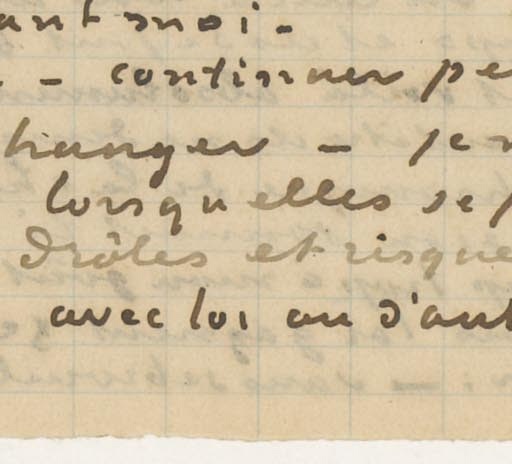 ant moi.
. – continuer pe
hanger – je n
lorsqu elles se p
drôles et risque
avec loi au d'aut